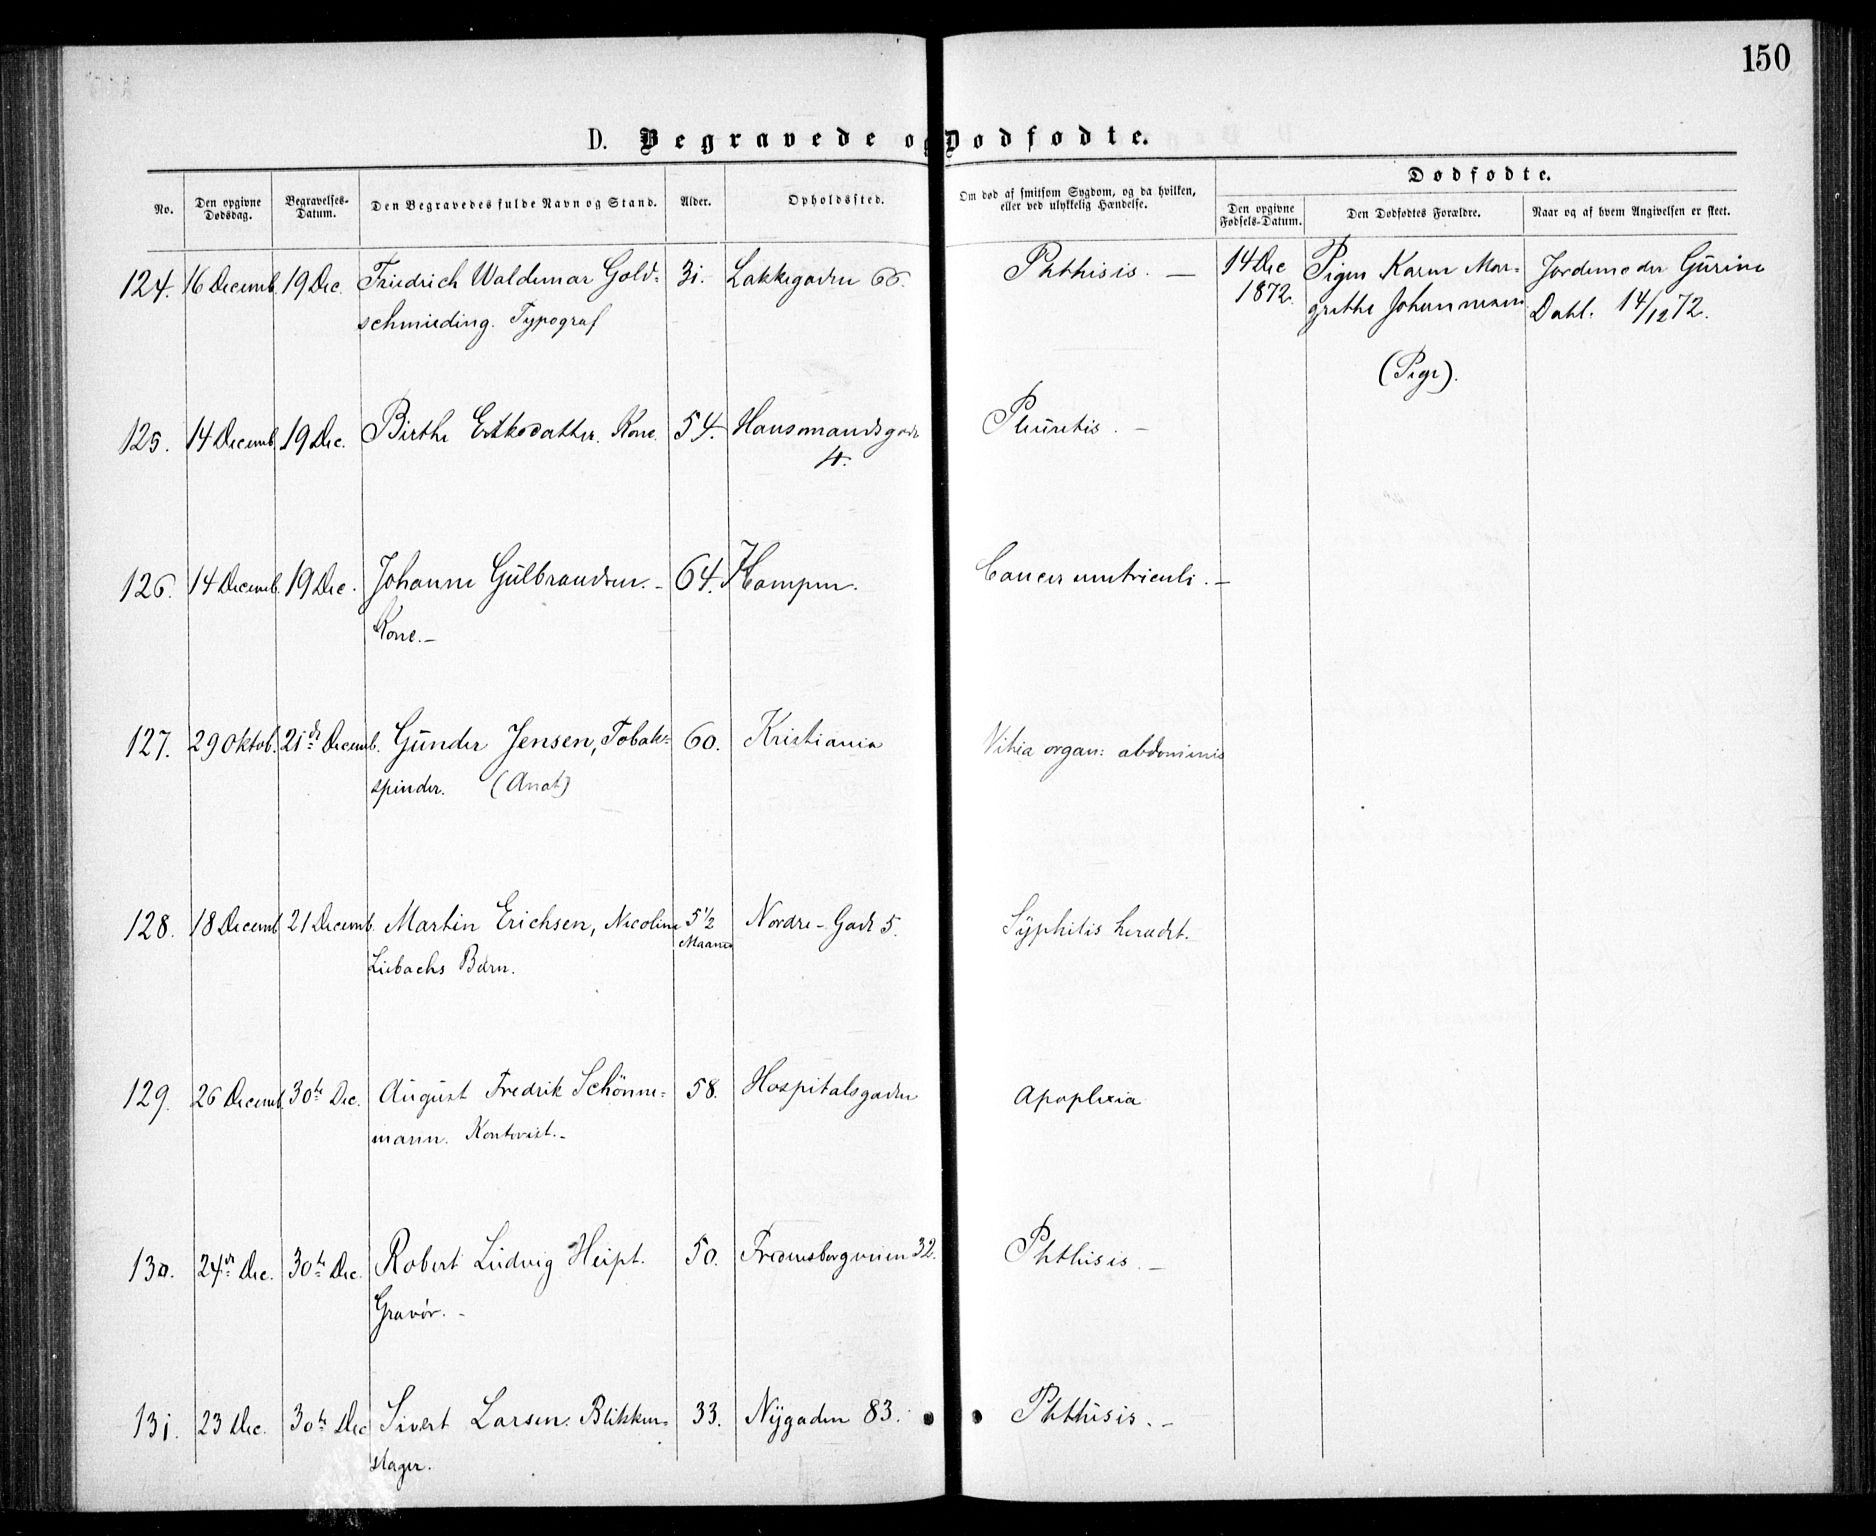 150
D. Begravede og Dødfødte.
No.
Den opgivne Dødsdag.
Begravelses-Datum.
Den Begravedes fulde Navn og Stand.
Alder.
Opholdssted.
Om død af smitsom Sygdom, og da hvilken,
eller ved ulykkelig Hændelse.
Dødfødte.
Den opgivne Fødsels-Datum.
Den Dødfødtes Forældre.
Naar og af hvem Angivelsen er skeet.
124. 16 Decemb. 19 Dec. Friedrich Waldemar Gold- 31. Lakkegaden 66. Phthisis. — 14 Dec Pigen Karen Mar- Jordemoder Gurine
schmieding. Typograf 1872. grethe Johannesen Dahl. 14/12 72.
(Pige).
125. 14 Decemb. 19 Dec. Birthe Kone. 54. Hausmandsgade Pleuritis. —
4.
126. 14 Decemb. 19 Dec. Johanne Gulbrandsen. - 64. Kampen. Cancer ventriculi. —
Kone. —
127. 29 Oktob. 21de Decemb. Gunder Jensen, Tobak- 60. Kristiania Vitia organ: abdominis
spinder. (Anat)
128. 18 Decemb 21 Decemb. Martin Erichsen, Nicoline 5 1/2 Nordre-Gade 5. Syphilis heredit.
Maaned
Liebachs Barn.
129. 26 Decemb. 30te Dec. August Fredrik Schönne- 58. Hospitalsgaden Apoplexia
mann. Kontorist. -
130. 24de Dec. 30te Dec. Robert Ludvig Heipt. 50. Fredensborgveien 32. Phthisis. —
Gravør. -
131. 23 Dec. 30te Dec Sivert Larsen. Blikken- 33. Nygaden 83. Phthisis. —
slager.